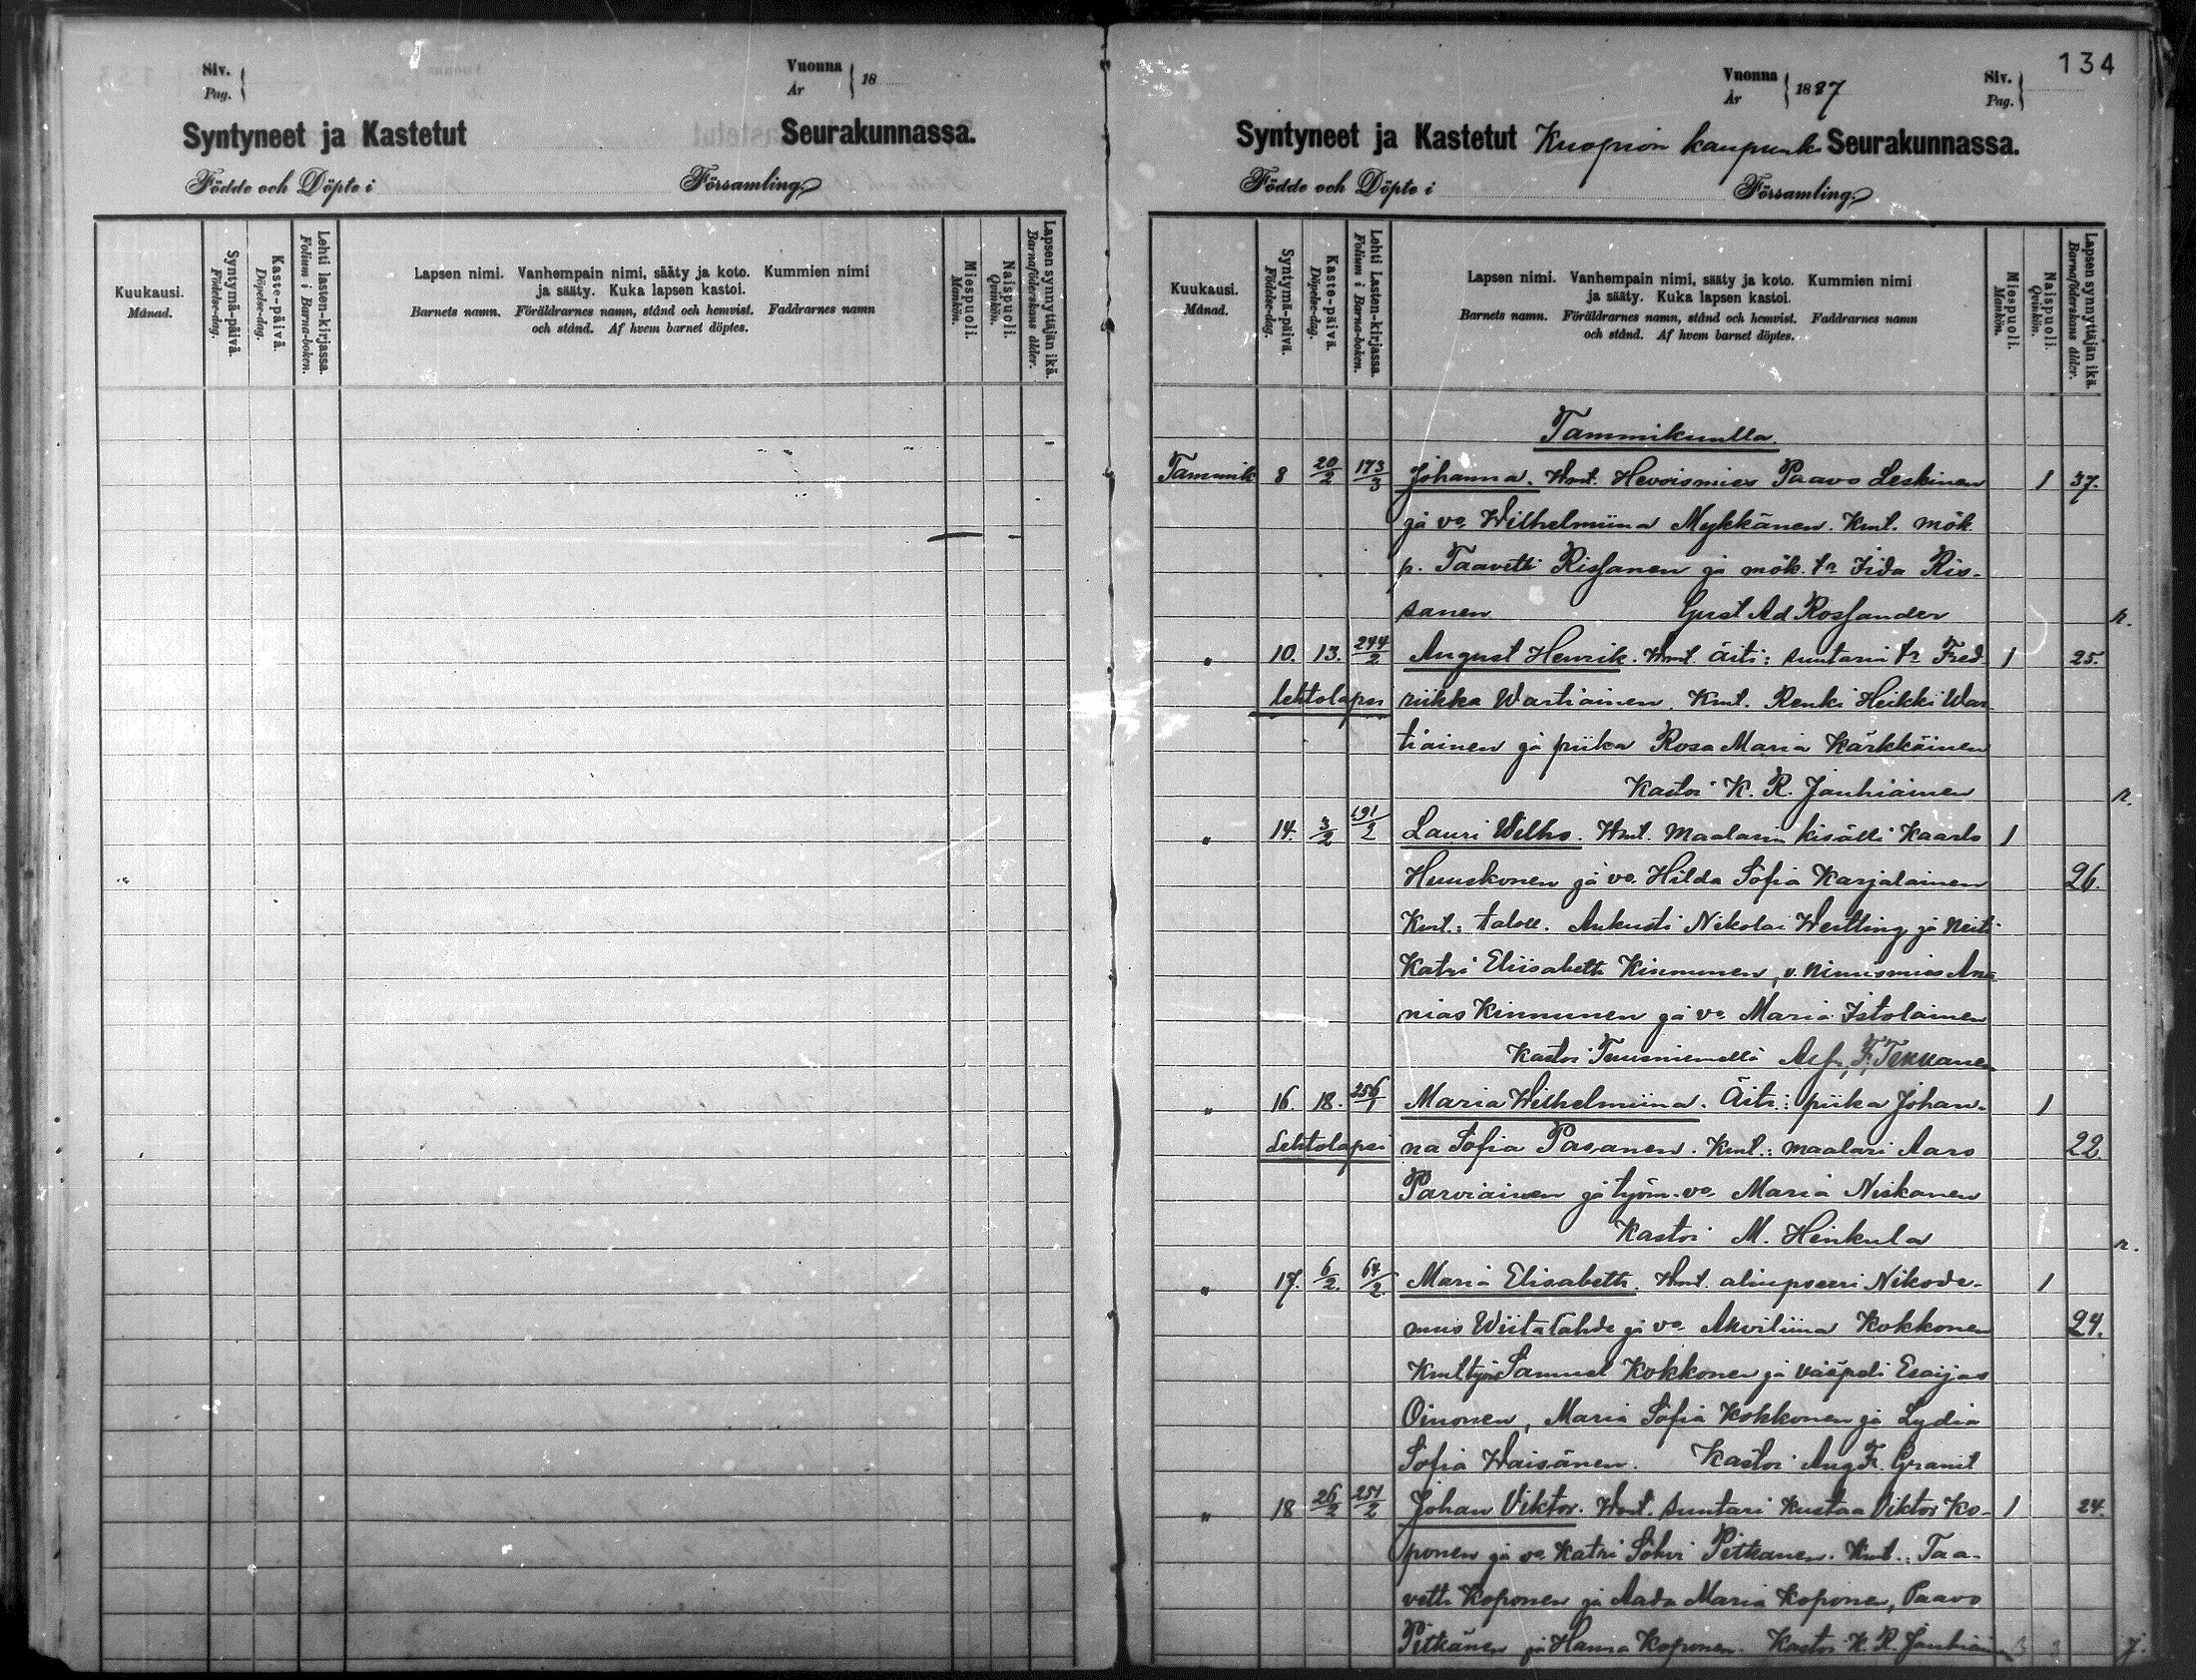 Siv.
Pag.
Vuonna
År
18
Syntyneet ja Kastetut Seurakunnassa.
Födde och Döpte i Församling
Kuukausi.
Månad.
Syntymä-päivä.
Födelse-dag.
Kaste-päivä.
Döpelse-dag.
Lehti lasten-kirjassa.
Folium i Barna-boken.
Lapsen nimi. Vanhempain nimi, sääty ja koto. Kummien nimi
ja sääty. Kuka lapsen kastoi.
Barnets namn. Föräldrarnes namn, stånd och hemvist. Faddrarnes namn
och stånd. Af hvem barnet döptes.
Miespuoli.
Mankön.
Naispuoli.
Qvinkön.
Lapsen synnyttäjän ikä.
Barnaföderskans ålder.
134
Vuonna
År
1887
Siv.
Pag.
Syntyneet ja Kastetut Kuopion kaupunk. Seurakunnassa.
Födde och Döpte i Församling
Kuukausi.
Månad.
Syntymä-päivä.
Födelse-dag.
Kaste-päivä.
Döpelse-dag.
Lehti Lasten-kirjassa.
Folium i Barna-boken.
Lapsen nimi. Vanhempain nimi, sääty ja koto. Kummien nimi
ja sääty. Kuka lapsen kastoi.
Barnets namn. Föräldrarnes namn, stånd och hemvist. Faddrarnes namn
och stånd. Af hvem barnet döptes.
Miespuoli.
Mankön.
Naispuoli.
Qvinkön.
Lapsen synnyttäjän ikä.
Barnaföderskans ålder.
Tammikuulla
Tammik 8 20/2 173/3 Johanna. Wmt. Hevoismies Paavo Leskinen 1 37.
ja vo. Wilhelmiina Mykkänen. Kmt. mök.
p. Taavetti Rissanen ja mök. tr Iida Ris-
sanen Gust Ad Rossander r.
" 10. 13. 244/2 August Henrik. Wmt. Äiti: suutarin tr Fred 1 25.
lehtolapsi riikka Wartiainen. Kmt. Renki Heikki War
tiainen ja piika Rosa Maria Kärkkäinen
Kastoi K. R. Jauhiainen r.
" 14. 3/2 191/2 Lauri Wilho. Wmt. Maalarin kisälli Kaarlo 1
Huuskonen ja vo. Hilda Sofia Karjalainen 26.
Kmt.: taloll. Aukusti Nikolai Westling ja Neiti
Katri Eliisabeth Kinnunen, v. nimismies Ana
nias Kinnunen ja vo. Maria Istolainen
Kastoi Tuusniemellä
" 16. 18. 256/1 Maria Wilhelmiina. Äiti: piika Johan- 1
Lehtolapsi na Sofia Pasanen. Kmt.: maalari Aaro 22.
Parviainen ja työm. vo. Maria Niskanen
Kastoi M. Heikula r.
" 17. 6/2. 64/2. Maria Elisabeth. Wmt. aliupseeri Nikode- 1
mus Wiitalahde ja vo. Akviliina Kokkonen 24.
Kmt työm Samuel Kokkonen ja vääpeli Esaijas
Oinonen, Maria Sofia Kokkonen ja Lydia
Sofia Waisänen. Kastoi Aug. Fr. Granit
" 18 26/2 251/2 Johan Viktor. Wmt. suutari Kustaa Viktor Ko- 1 24.
ponen ja vo. Katri Sohvi Pitkänen. Kmt.: Taa-
vetti Koponen ja Aada Maria Koponen, Paavo
Pitkänen ja Hanna Koponen. Kastoi K. R. Jauhiain